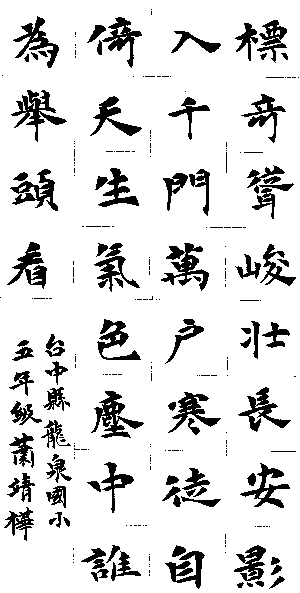 標奇聳峻壯長安影
入千門萬戶寒徒自
倚天生氣色塵中誰
為舉頭看
台中縣龍泉國小
五年級蕭靖樺